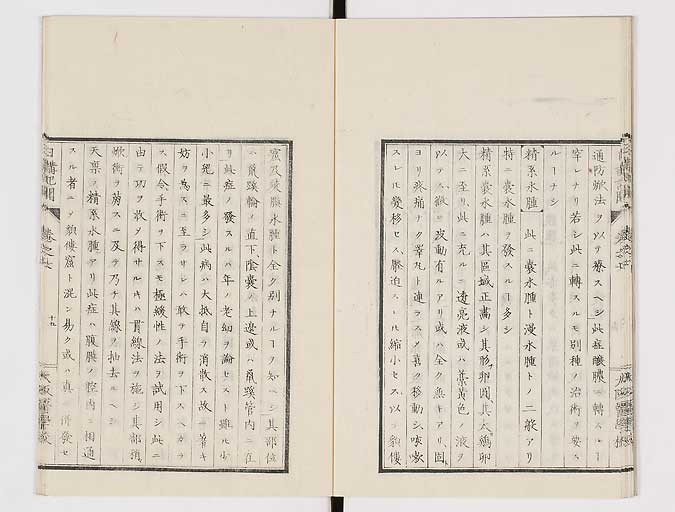 通防焮法ヲ以テ療スヘシ此症醸膿ニ轉スルー
窄レナリ若シ此ニ轉スルモ別種ノ治術ヲ要ス
ルーナシ
精系水腫 此ニ嚢水腫ト浸水腫トノ二般アリ
特ニ嚢水腫ヲ發スルー多シ
精系嚢水腫ハ其區域正齊シ其形卵圓其大鷄卵
大ニ至リ此ニ充ルニ透亮液或ハ藁黄色ノ液ヲ
以テス縦ヒ波動有ルアリ或ハ全ク無キアリ固
ヨリ疼痛ナク睾丸ト連ラス又善ク移動シ咳嗽
スレハ變移セス壓迫ストモ縮小セス以テ鼠僂
窟及陰膜水腫ト全ク別ナルーヲ知ヘシ其部位
ハ鼠蹊輪ノ直下、陰嚢ノ上邊或ハ鼠蹊管内ニ在
リ此症ノ發スルハ年ノ老幼ヲ論セスト雖ルモ
小兒ニ最多シ此病ハ大抵自ラ消散ス故ニ苦キ
妨ヲ爲スニ至ラサレハ敢テ手術ヲ下スヘカラ
ス假令手術ヲ下スモ極緩性ノ法ヲ試用シ此ニ
由テ功ヲ收メ得サルキハ貫線法ヲ施シ其部稍
焮衝ヲ發スニ及テ乃チ其線ヲ抽去スヘシ
天禀ノ精系水腫アリ此症ハ腹膜ノ腔内ニ相通
スル者ニメ鼠僂窟ト混シ易ク或ハ眞 併發セ
日講記聞 卷之 十五
大阪醫學校